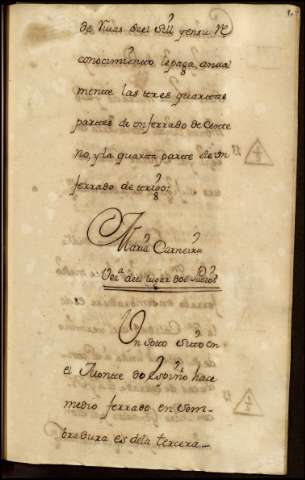 de Vivas
conocimiento le paga anual
mente las tres quartas
partes de un ferrado de Cente
no, y la quarta parte de un
ferrado de trigo:
Maria Carneira
Vez.ª del lugar dos
Un soto Sito en
el Monte do Espiño hace
medio ferrado en Sem-
bradura es de la tercera